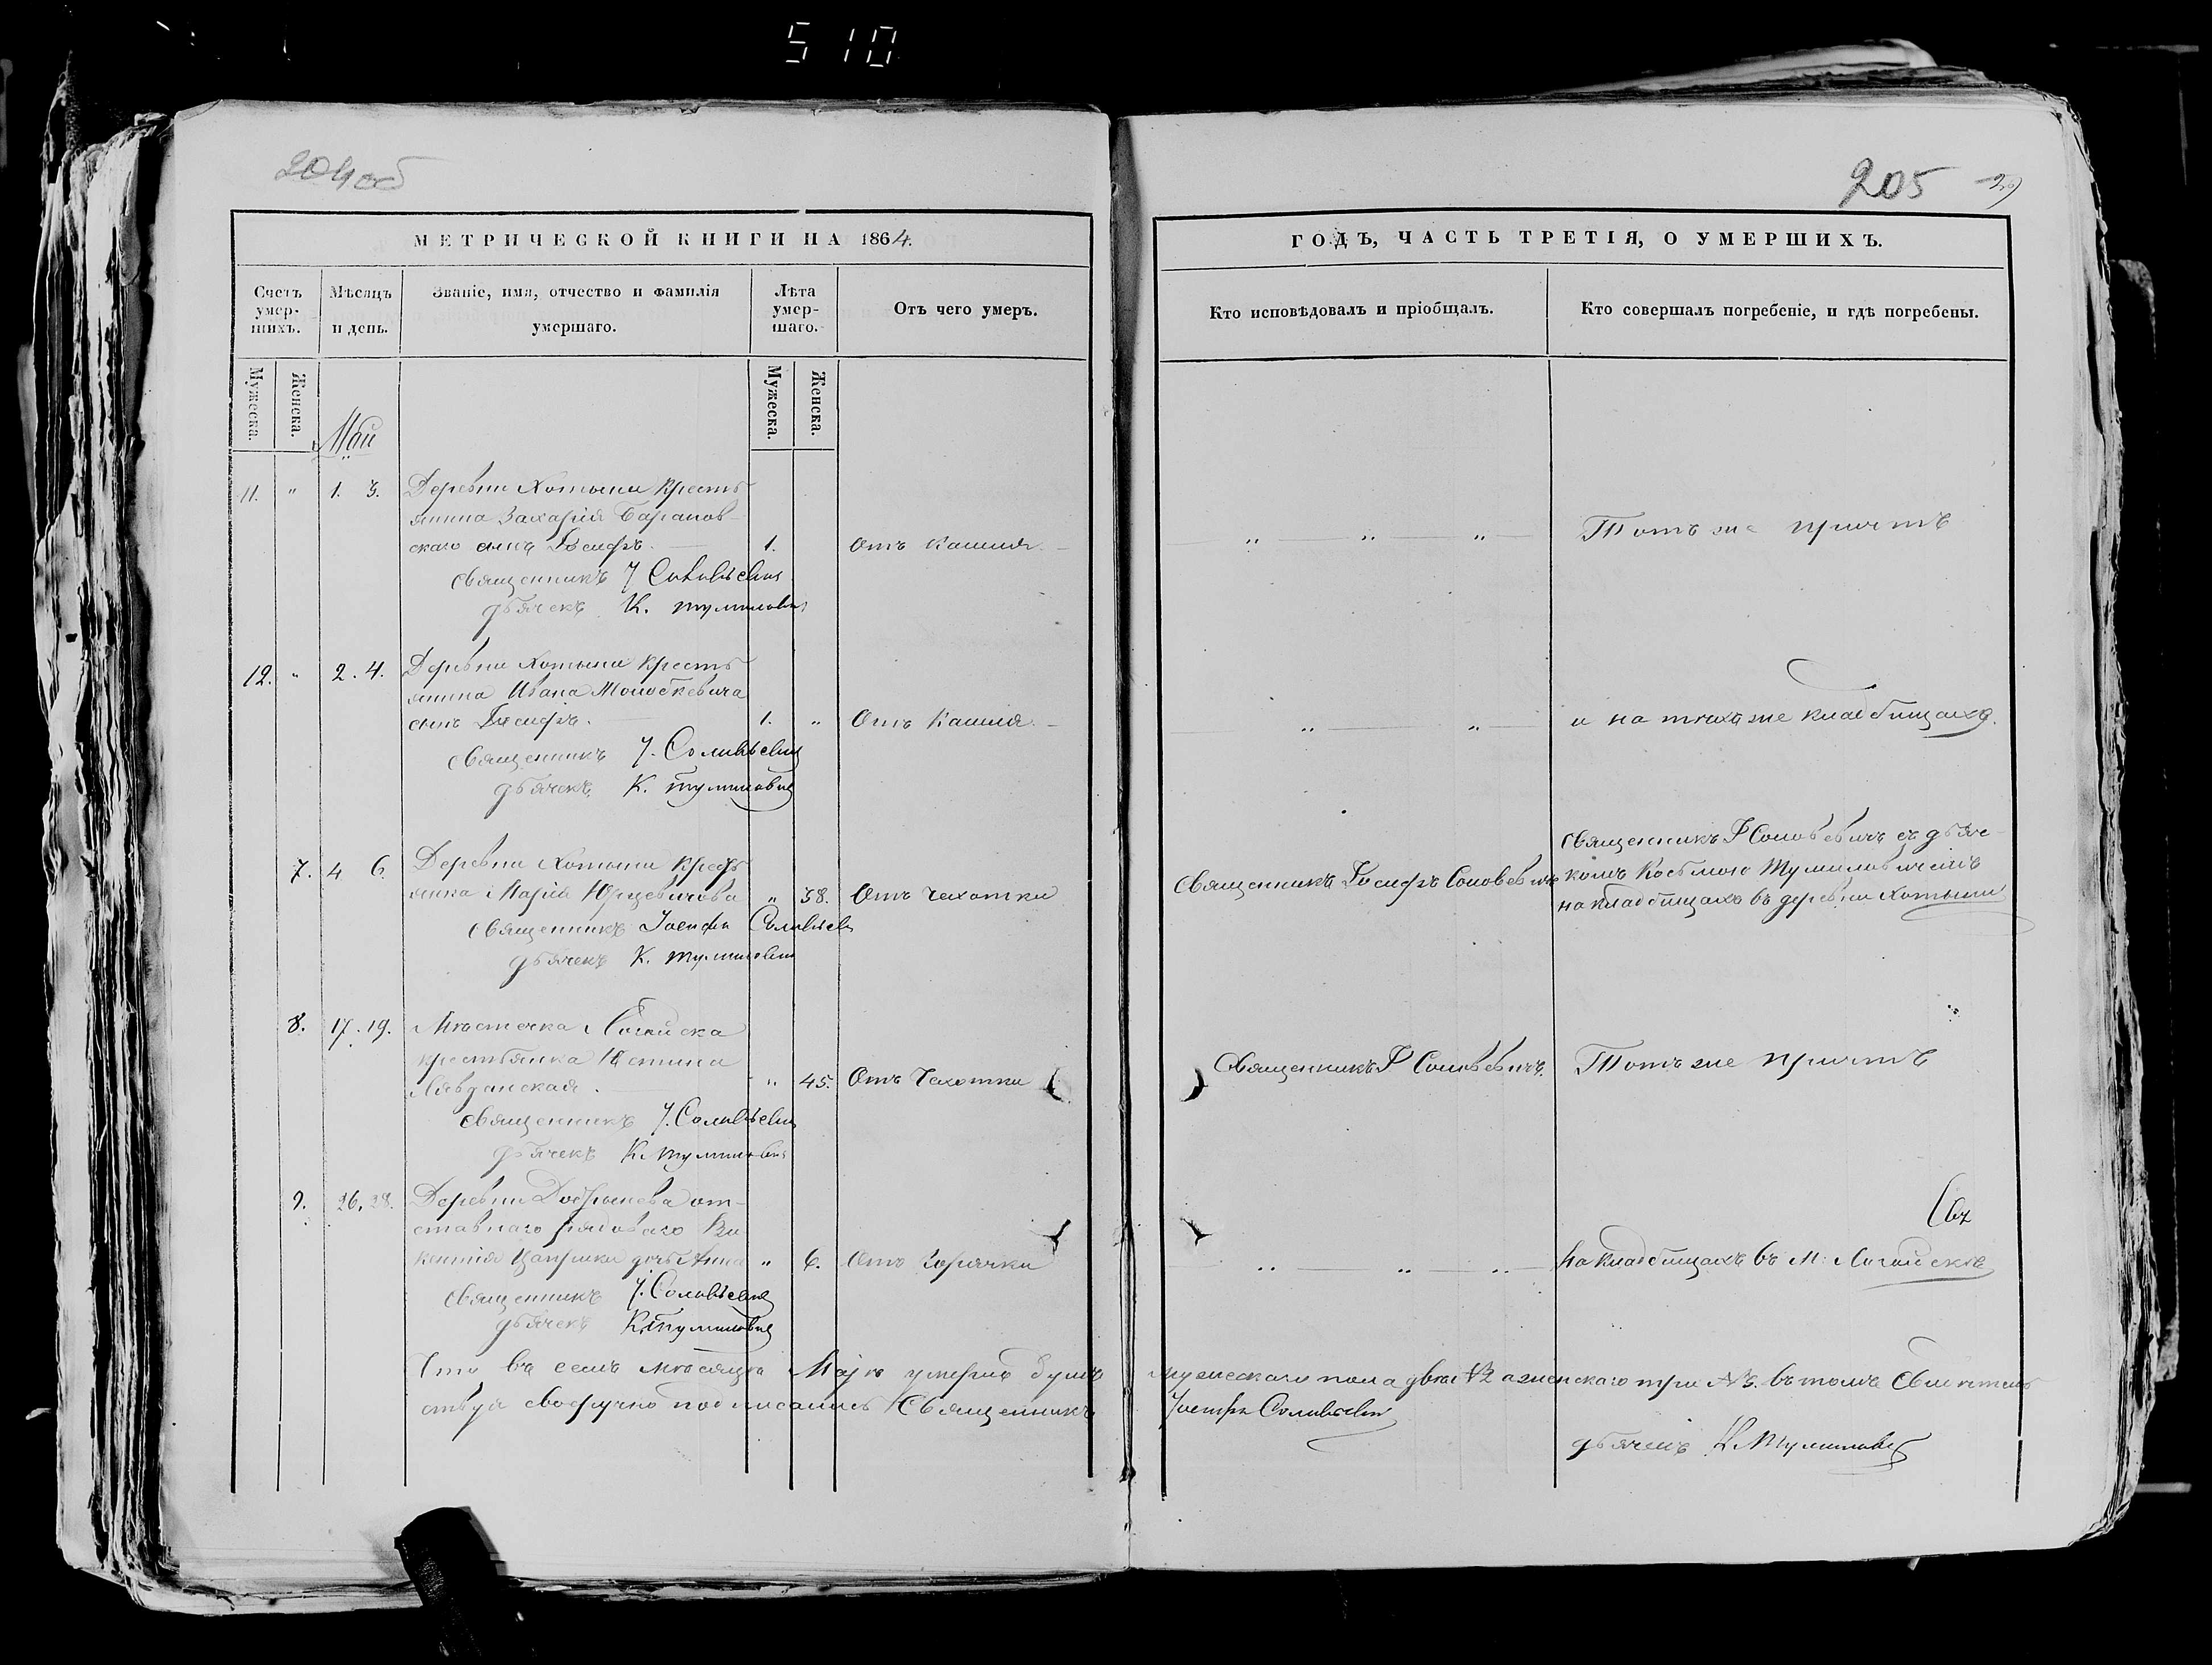 510
204 об
205
МЕТРИЧЕСКОЙ КНИГИ НА 1864.
Счетъ умер-
шихъ.
Мѣсяцъ
и день.
Званіе, имя, отчество и фамилія
умершаго.
Лѣта
умер-
шаго.
Отъ чего умеръ.
Мужеска.
Женска.
Май
Мужеска.
Женска.
11. " 1. 3. Деревни Хотыни кресть
янина Захарія Баранов-
скаго сынъ Іосифъ. 1. Отъ кашля.
священникъ І Соловьевичъ
дьячекъ К. Тумиловичъ
12. " 2. 4. Деревни Хотыни кресть
янина Ивана
сынъ Іосифъ. 1. " Отъ кашля.
священникъ І. Соловьевичъ
дьячекъ К. Тумиловичъ
7. 4 6. Деревни Хотыни кресть
янка Марія Юрцевичова " 38. Отъ чахотки
священникъ Іосифъ Соловьев
дьячекъ К. Тумиловичъ
8. 17. 19. Мѣстечка Логойска
крестьянка Устина
" 45. Отъ Чахотки
священникъ І. Соловьевичъ
дьячекъ К. Тумиловичъ
9. 26. 28. Деревни от-
ставнаго рядоваго Ви
кентія дочь Анна " 6. Отъ Горячки
священникъ І. Соловьевичъ
дьячекъ К. Тумиловичъ
Что въ семъ мѣсяцѣ Маѣ умерло душъ
ствуя своеручно подписались Священникъ
ГОДЪ, ЧАСТЬ ТРЕТІЯ, О УМЕРШИХЪ.
Кто исповѣдовалъ и пріобщалъ.
Кто совершалъ погребеніе, и гдѣ погребены.
" " " Тотъ же причтъ
" " и на тѣхъ же кладбищахъ.
священникъ І Соловьевичъ съ дьяч-
Священникъ Іосифъ Соловьевичъ комъ Косьмою Тумиловичемъ
на кладбищахъ въ деревни Хотыни
Священникъ І Соловьевичъ. Тотъ же причтъ
" " " на кладбищахъ въ М: Логойскѣ
мужескаго пола два №2 а женскаго три №3. въ томъ Свидѣтель
Іосифъ Соловьевичъ
дьячекъ К. Тумиловичъ